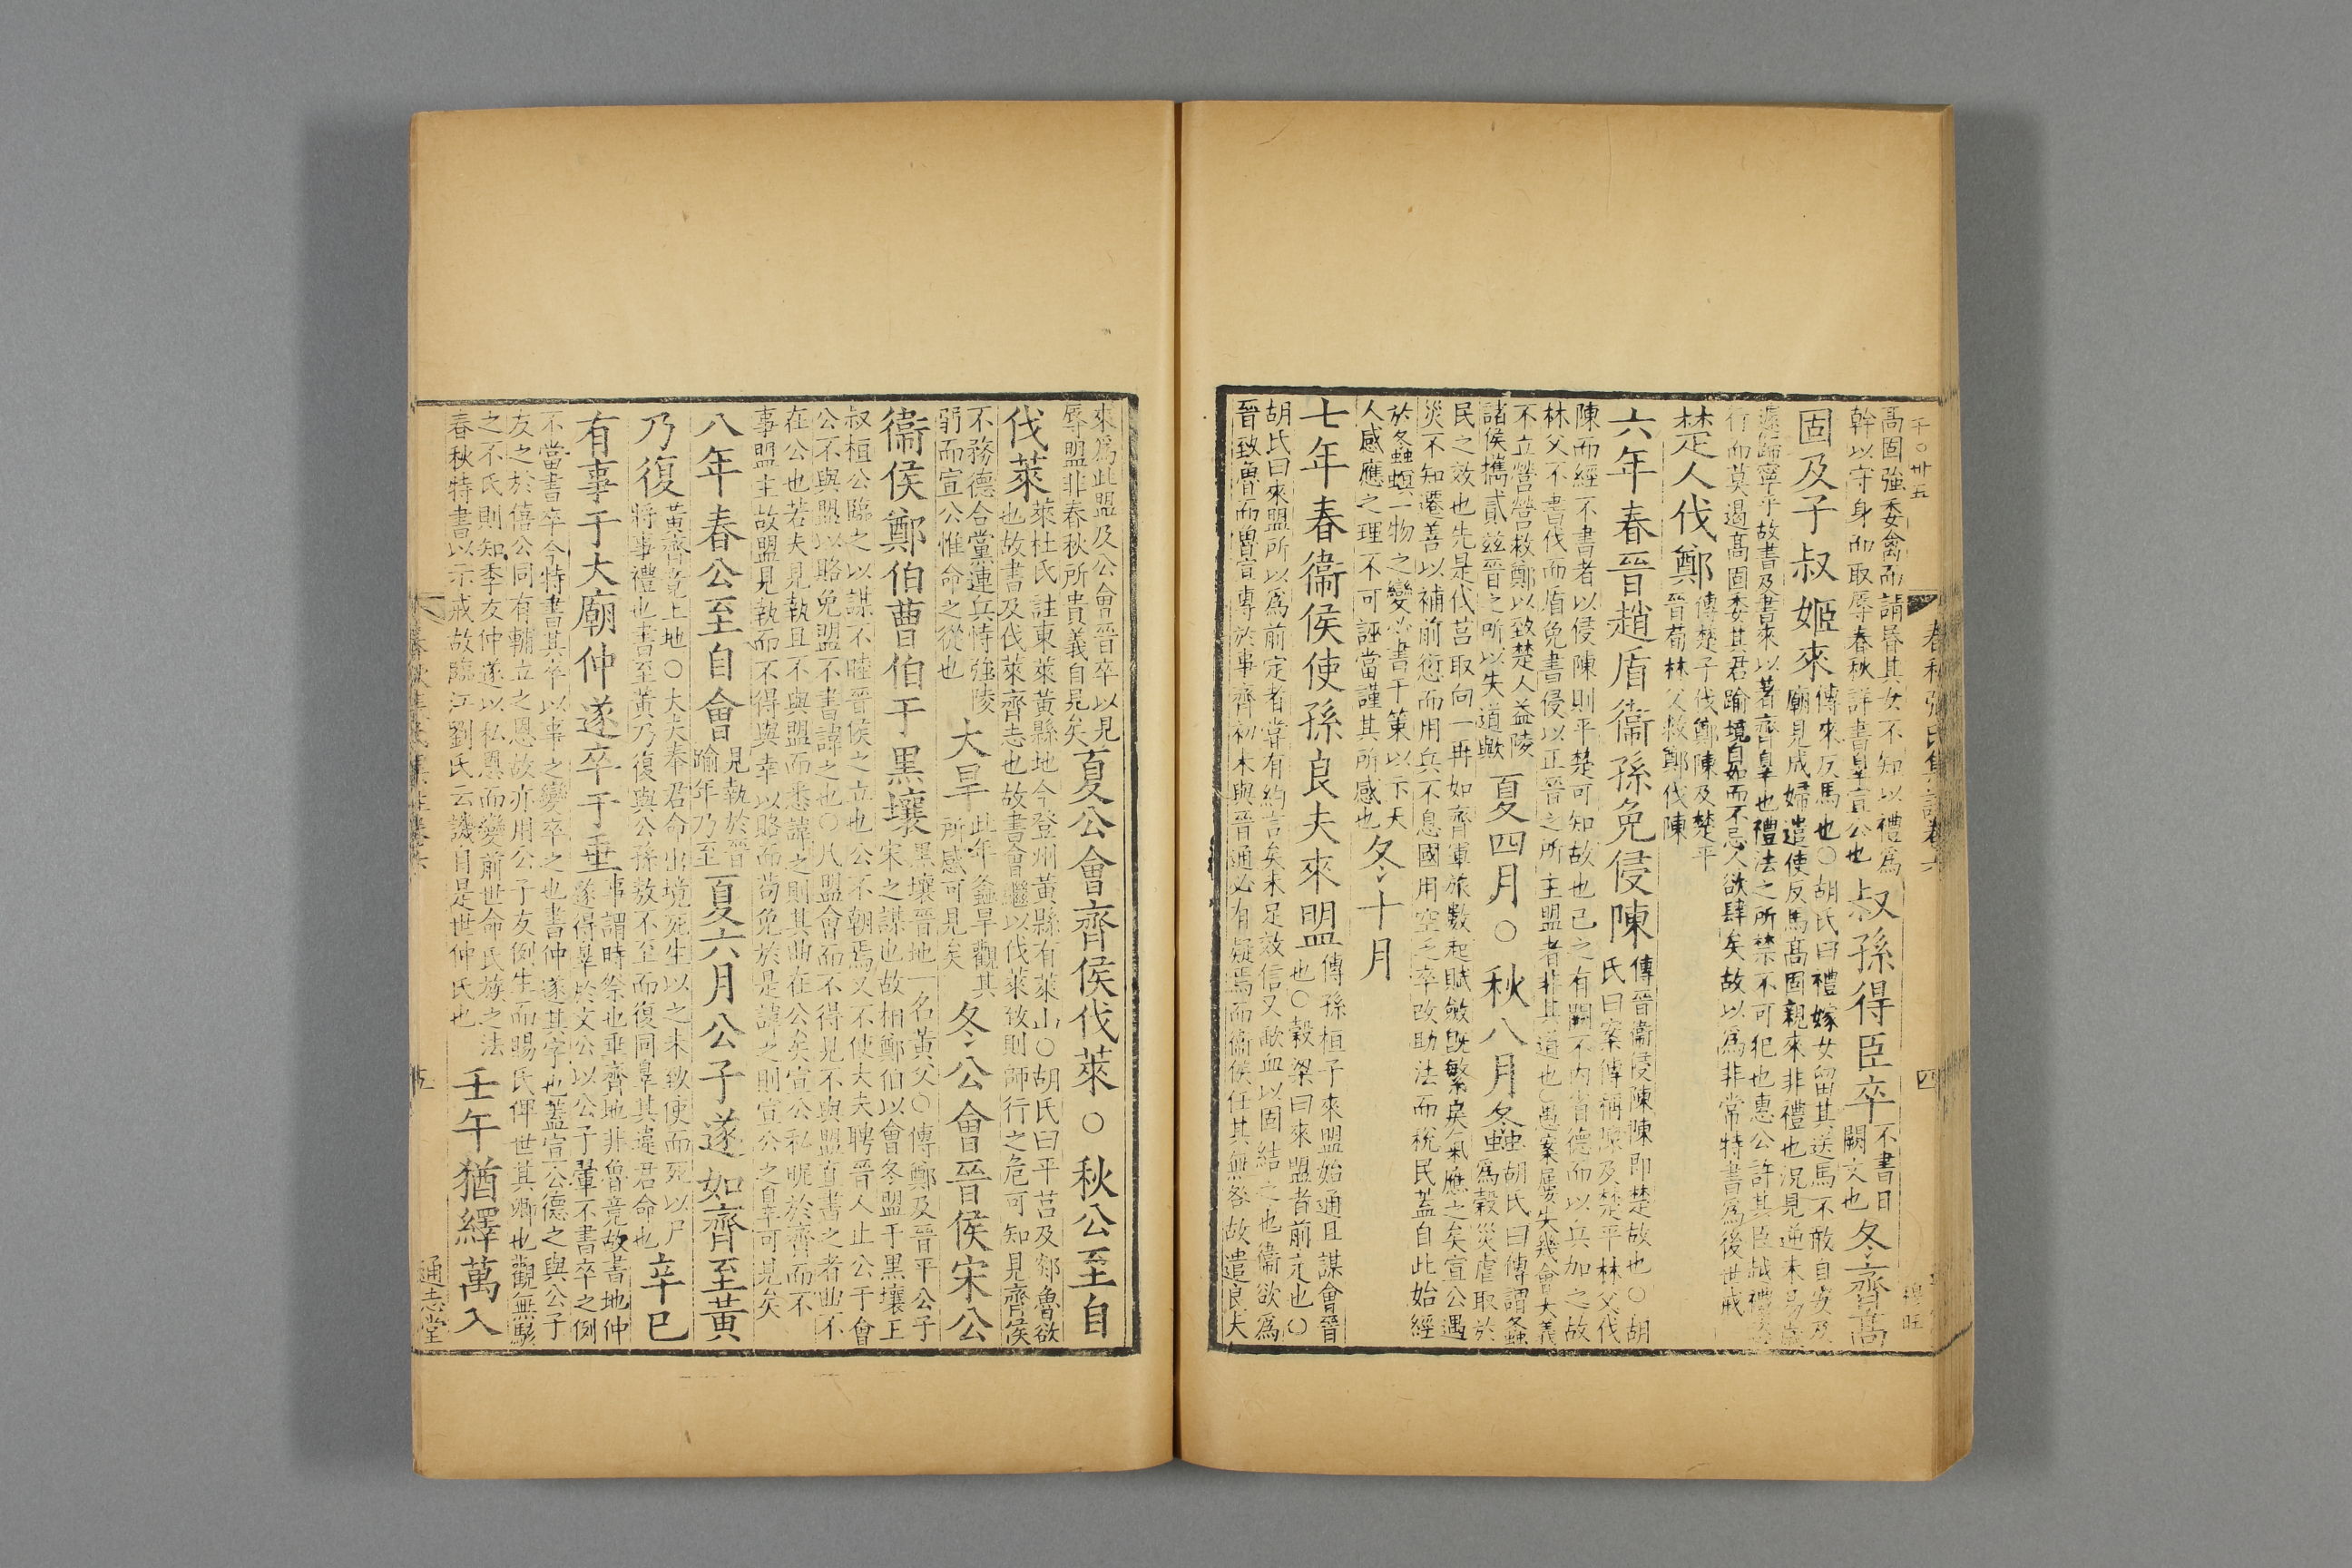 千○卅五
春秋張氏集註卷六
四
穆旺
高固強委禽而請昏其女不知以禮為
幹以守身而取辱春秋詳書辠宣公也
叔孫得臣卒
不書日
闕文也
冬齊高
固及子叔姬來
傳來反馬也○胡氏曰禮嫁女留其送馬不敢自安及
廟見成婦遣使反馬高固親來非禮也況見逆未易歲
遽歸寧乎故書及書來以著齊辠也禮法之所禁不可犯也惠公許其臣越禮恣
行而莫遏高固委其君踰境自如而不忌人欲肆矣故以為非常特書為後世戒
楚人伐鄭
傳楚子伐鄭陳及楚平
晉荀林父救鄭伐陳
六年春晉趙盾衞孫免侵陳
傳晉衞侵陳陳即楚故也○胡
氏曰案傳稱陳及楚平林父伐
陳而經不書者以侵陳則平楚可知故也已之有闕不內省德而以兵加之故
林父不書伐而盾免書侵以正晉之所主盟者非其道也○愚案屢失幾會大義
不立營營救鄭以致楚人益陵
諸侯攜貳兹晉之所以失道歟
夏四月○秋八月冬螽
胡氏曰傳謂螽
為穀災虐取於
民之效也先是伐莒取向一再如齊軍旅數起賦斂既繁戾氣應之矣宣公遇
災不知遷善以補前愆而用兵不息國用空乏卒改助法而稅民蓋自此始經
於冬螽螟一物之變必書于策以示天
人感應之理不可誣當謹其所感也
冬十月
七年春衞侯使孫良夫來盟
傳孫桓子來盟始通且謀會晉
也○穀梁曰來盟者前定也○
胡氏曰來盟所以為前定者嘗有約言矣未足效信又歃血以固結之也衞欲為
晉致魯而魯宣專於事齊初未與晉通必有疑焉而衞侯任其無咎故遣良夫
來為此盟及公會晉卒以見
辱盟非春秋所貴義自見矣
夏公會齊侯伐萊○秋公至自
伐萊
萊杜氏註東萊黃縣地今登州黃縣有萊山○胡氏曰平莒及郯魯欲
也故書及伐萊齊志也故書會繼以伐萊致則師行之危可知見齊侯
不務德合黨連兵恃強陵
弱而宣公惟命之從也
大旱
此年螽旱觀其
所感可見矣
冬公會晉侯宋公
衞侯鄭伯曹伯于黑壤
黑壤晉地一名黃父○傳鄭及晉平公子
宋之謀也故相鄭伯以會冬盟于黑壤王
叔桓公臨之以謀不睦晉侯之立也公不朝焉又不使大夫聘晉人止公于會
公不與盟以賂免盟不書諱之也○凡盟會而不得見不與盟直書之者曲不
在公也若夫見執且不與盟而悉諱之則其曲在公矣宣公私昵於齊而不
事盟主故盟見執而不得與幸以賂而苟免於是諱之則宣公之辠可見矣
八年春公至自會
見執於晉
踰年乃至
夏六月公子遂如齊至黃
乃復
黃齊竟上地○大夫奉君命出境死生以之未致使而死以尸
將事禮也書至黃乃復與公孫敖不至而復同辠其違君命也
辛巳
有事于大廟仲遂卒于垂
事謂時祭也垂齊地非魯竟故書地仲
遂得辠於文公以公子翬不書卒之例
不當書卒今特書其卒以事之變卒之也書仲遂其字也蓋宣公德之與公子
友之於僖公同有輔立之恩故亦用公子友例生而賜氏俾世其卿也觀無駭
之不氏則知季友仲遂以私恩而變前世命氏族之法
春秋特書以示戒故臨江劉氏云譏自是世仲氏也
壬午猶繹萬入
五
通志堂